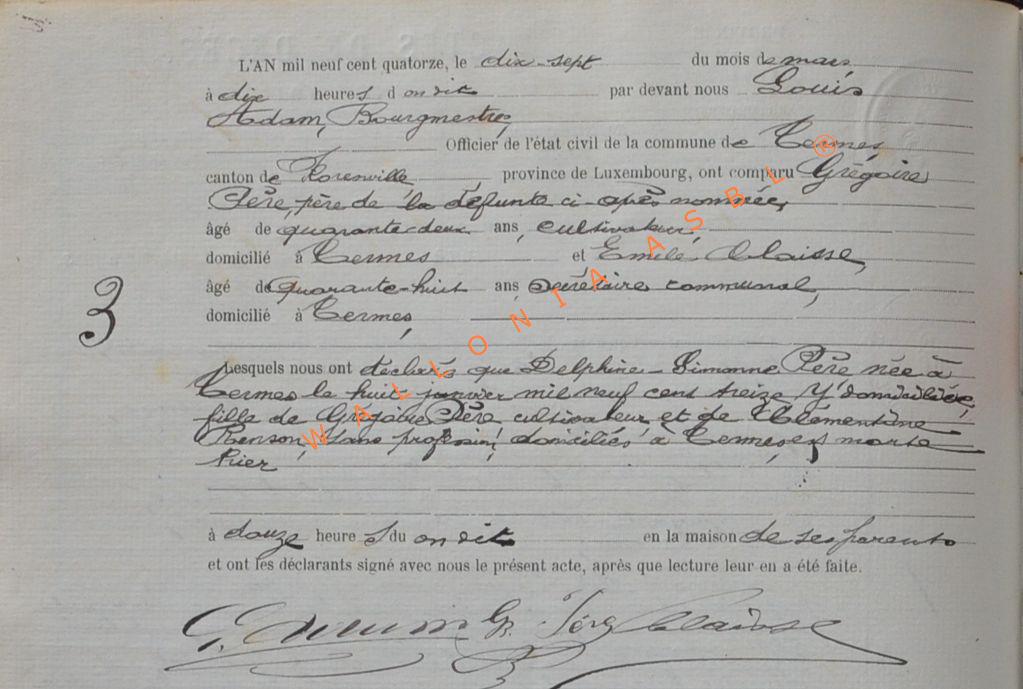 L'AN mil neuf cent quatorze, le dix-sept du mois de mars
à dix heures d on dit par devant nous Louis
Adam, Bourgmestre,
Officier de l'état civil de la commune de Termes
canton de Florenville province de Luxembourg, ont comparu Grégoire
père de la défunte ci-après nommée,
âgé de quarante-deux ans, cultivateur,
domicilié à Termes et Emile Claisse,
âgé de quarante-huit ans, secrétaire communal,
domicilié à Termes,
3
Lesquels nous ont déclarés que Delphine-Simonne née à
Termes le huit janvier mil neuf cent treize y domiciliée,
fille de Grégoire cultivateur et de Clémentine
sans profession, domiciliés à Termes, est morte
hier
à douze heure s du on dit en la maison de ses parents
et ont les déclarants signé avec nous le présent acte, après que lecture leur en a été faite.
Claisse
WALLONIA ASBL ®